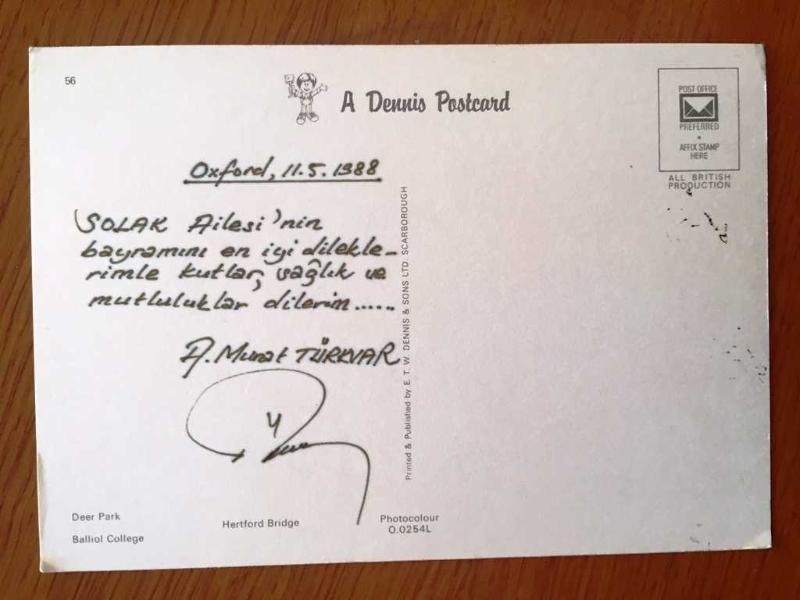 56
A Dennis Postcard
POST OFFICE
PREFERRED
AFFIX STAMP
HERE
ALL BRITISH
PRODUCTION
Oxford, 11.5.1988
SOLAK Ailesi'nin
bayramını en iyi dilekle-
rimle kutlar, sağlık ve
mutluluklar dilerim......
A. Murat TÜRKVAR
Printed & Published by E. T. W. DENNIS & SONS LTD. SCARBOROUGH
Deer Park
Balliol College
Hertford Bridge
Photocolour
O.0254L